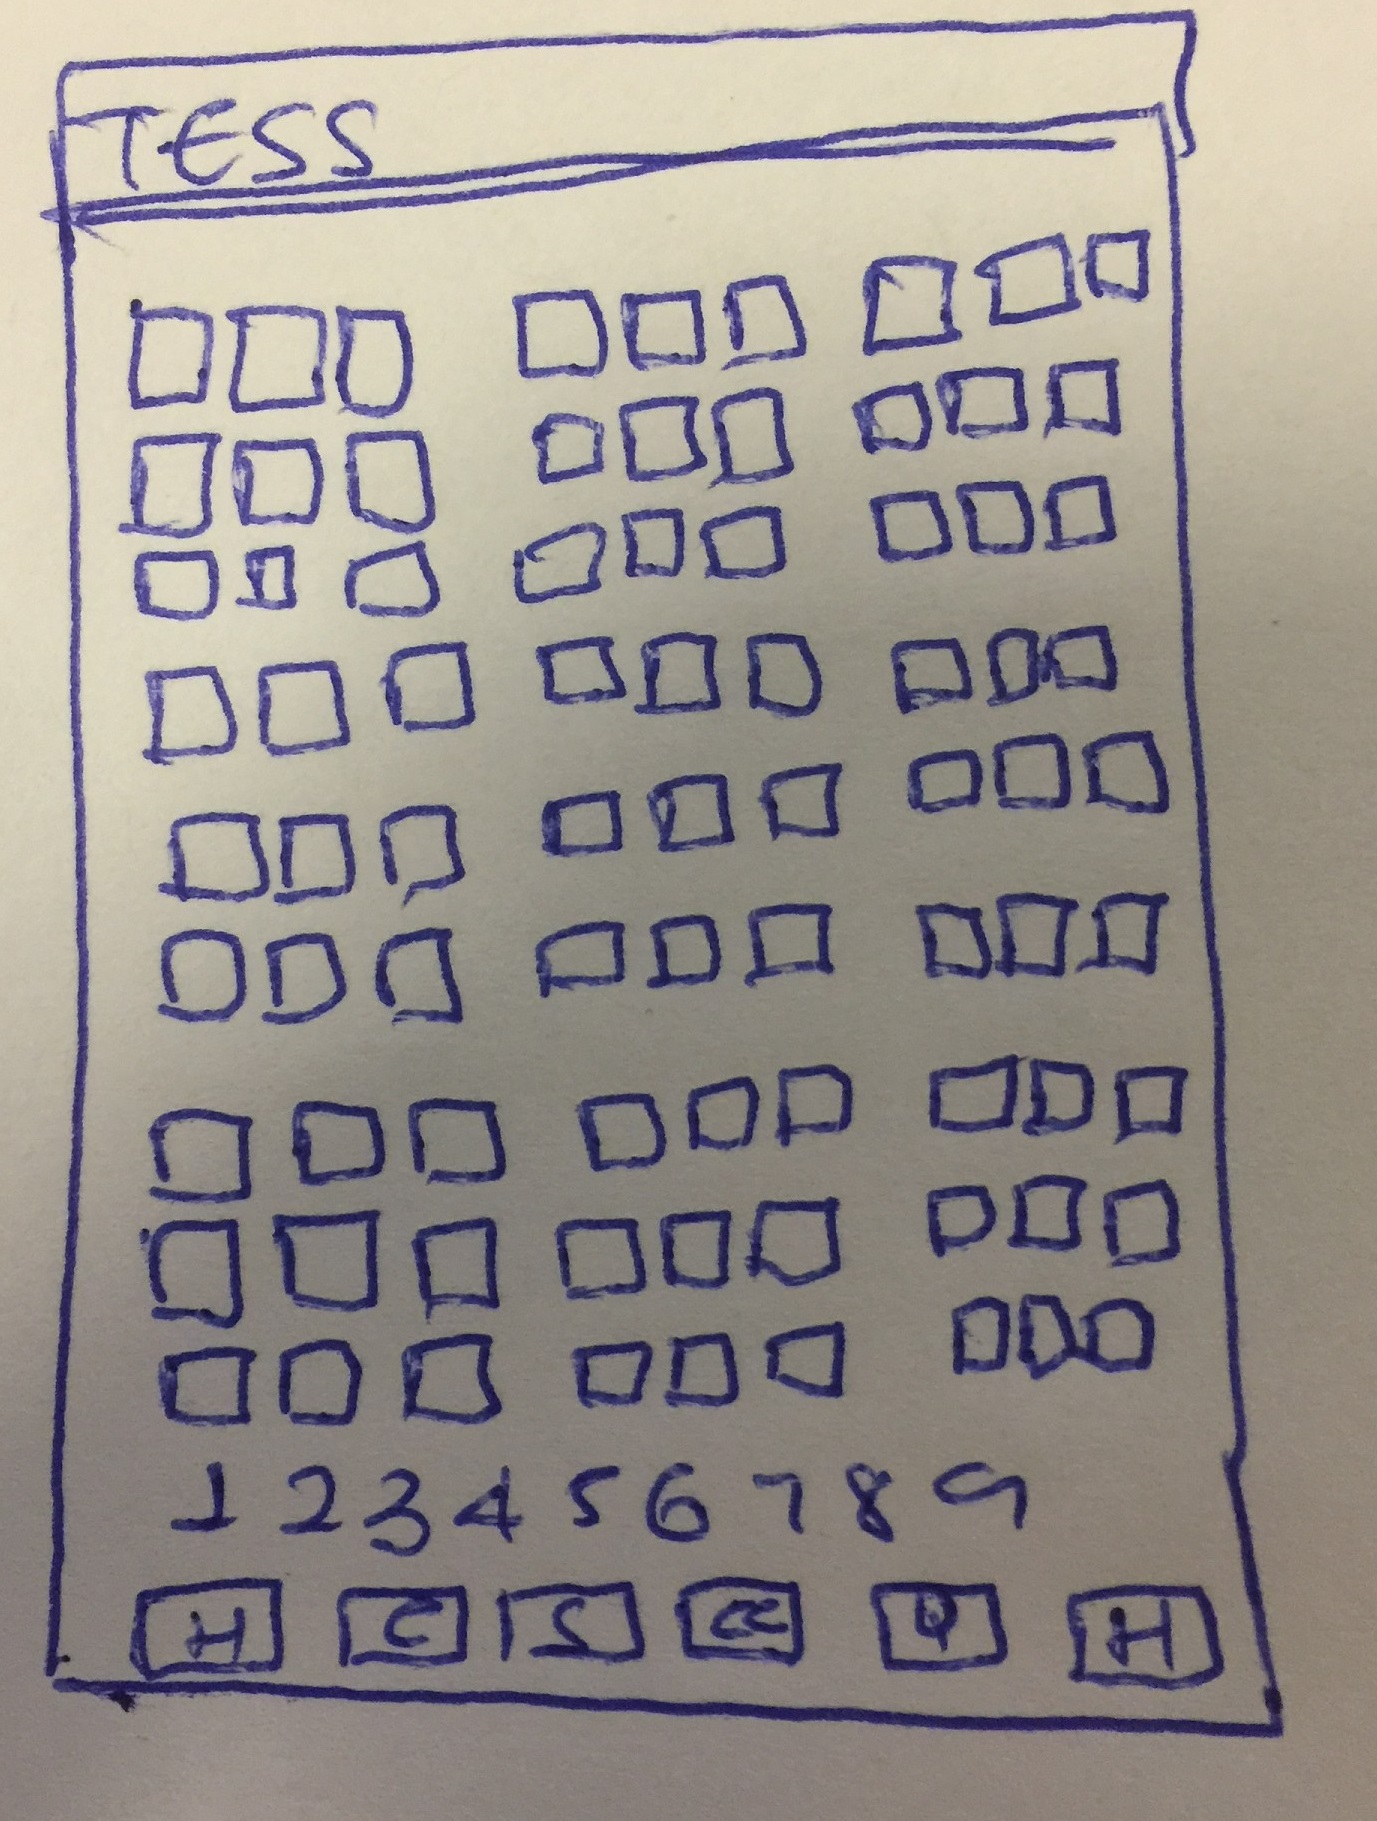 TESS
1 2 3 4 5 6 7 8 9
H C S H